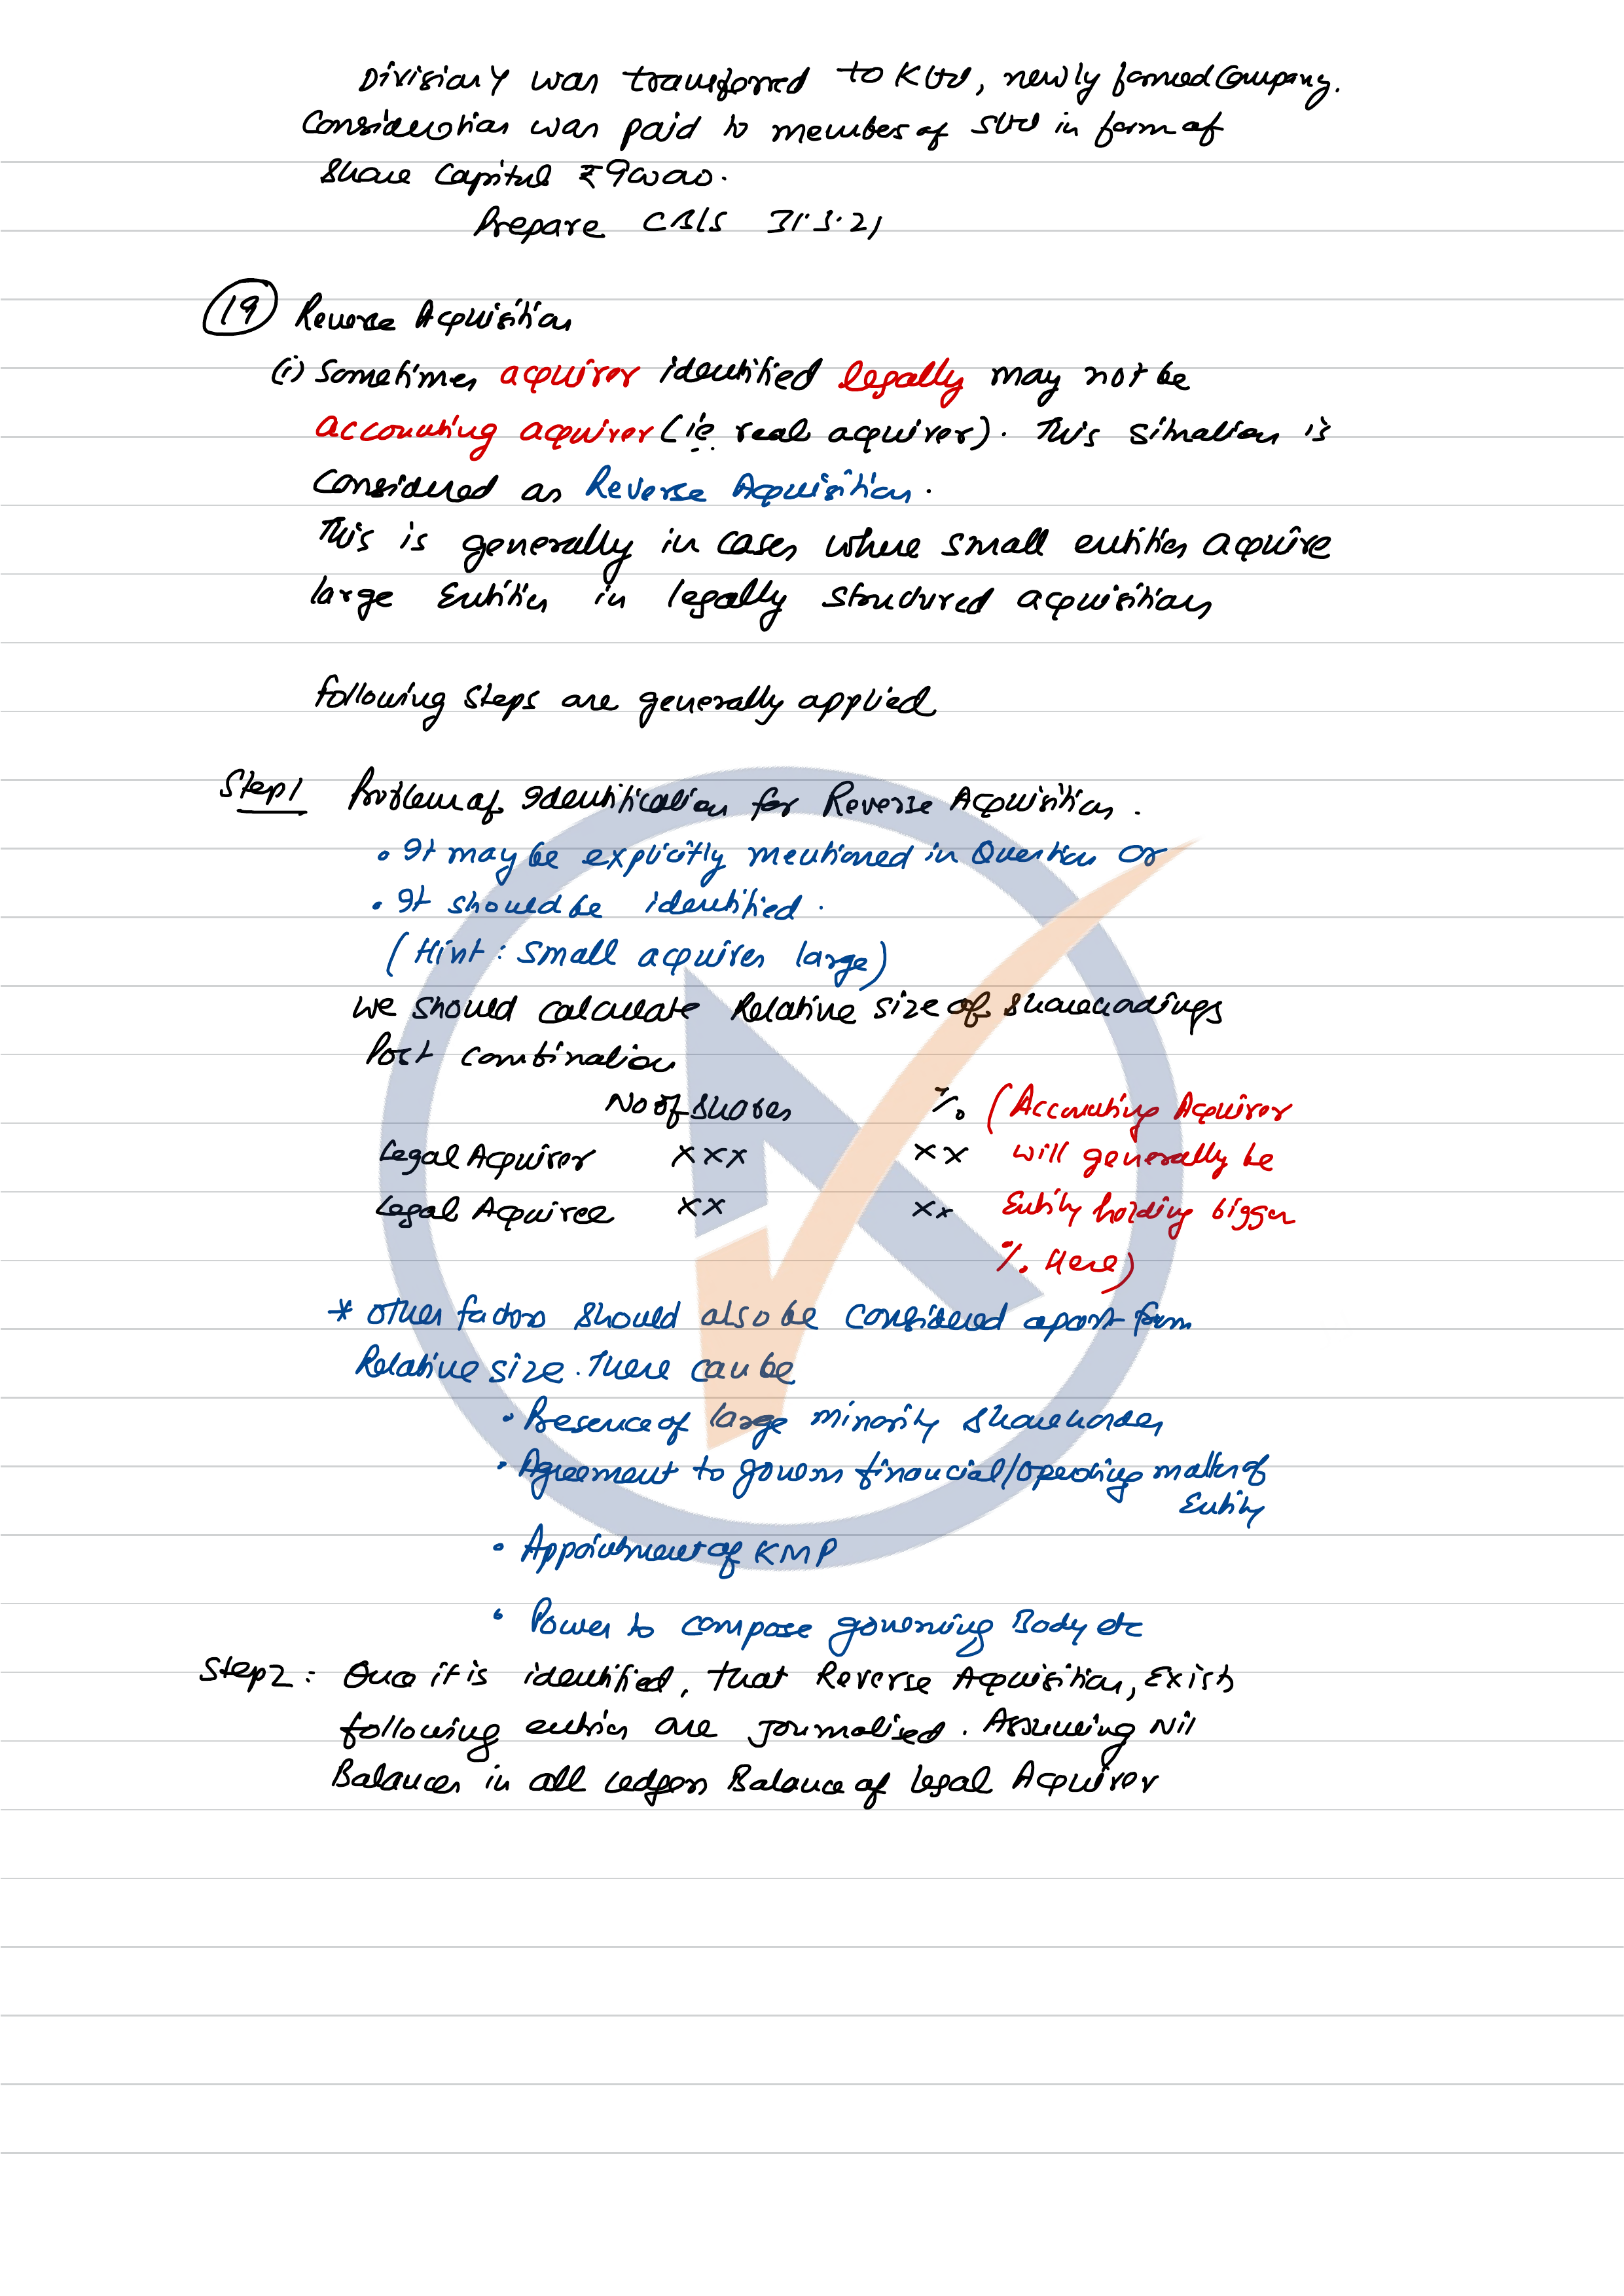 Division Y was transferred to K Ltd, newly formed Company.
Consideration was paid to members of S Ltd in form of
Share Capital ₹90000.
Prepare CBS 31.3.21
19 Reverse Acquisition
(i) Sometimes acquirer identified legally may not be
accounting acquirer (ie real acquirer). This situation is
Considered as Reverse Acquisition.
This is generally in cases where small entities acquire
large Entities in legally structured acquisitions
following steps are generally applied
Step 1 Problem of Identification for Reverse Acquisition.
• It may be explicitly mentioned in Question or
• It should be identified.
(Hint: Small acquires large)
We should calculate Relative size of Shareholdings
Post combination
No of Shares % (Accounting Acquirer
Legal Acquirer xxx xx will generally be
Legal Acquiree xx xx Entity holding bigger
% Here)
* other factors should also be considered apart from
Relative size. There can be
• Presence of large minority shareholders
• Agreement to govern financial/operating matter of
Entity
• Appointment of KMP
• Power to compose governing Body etc
Step 2: Once it is identified, that Reverse Acquisition, Exists
following entries are Journalised. Assuming Nil
Balances in all Ledgers Balance of Legal Acquirer